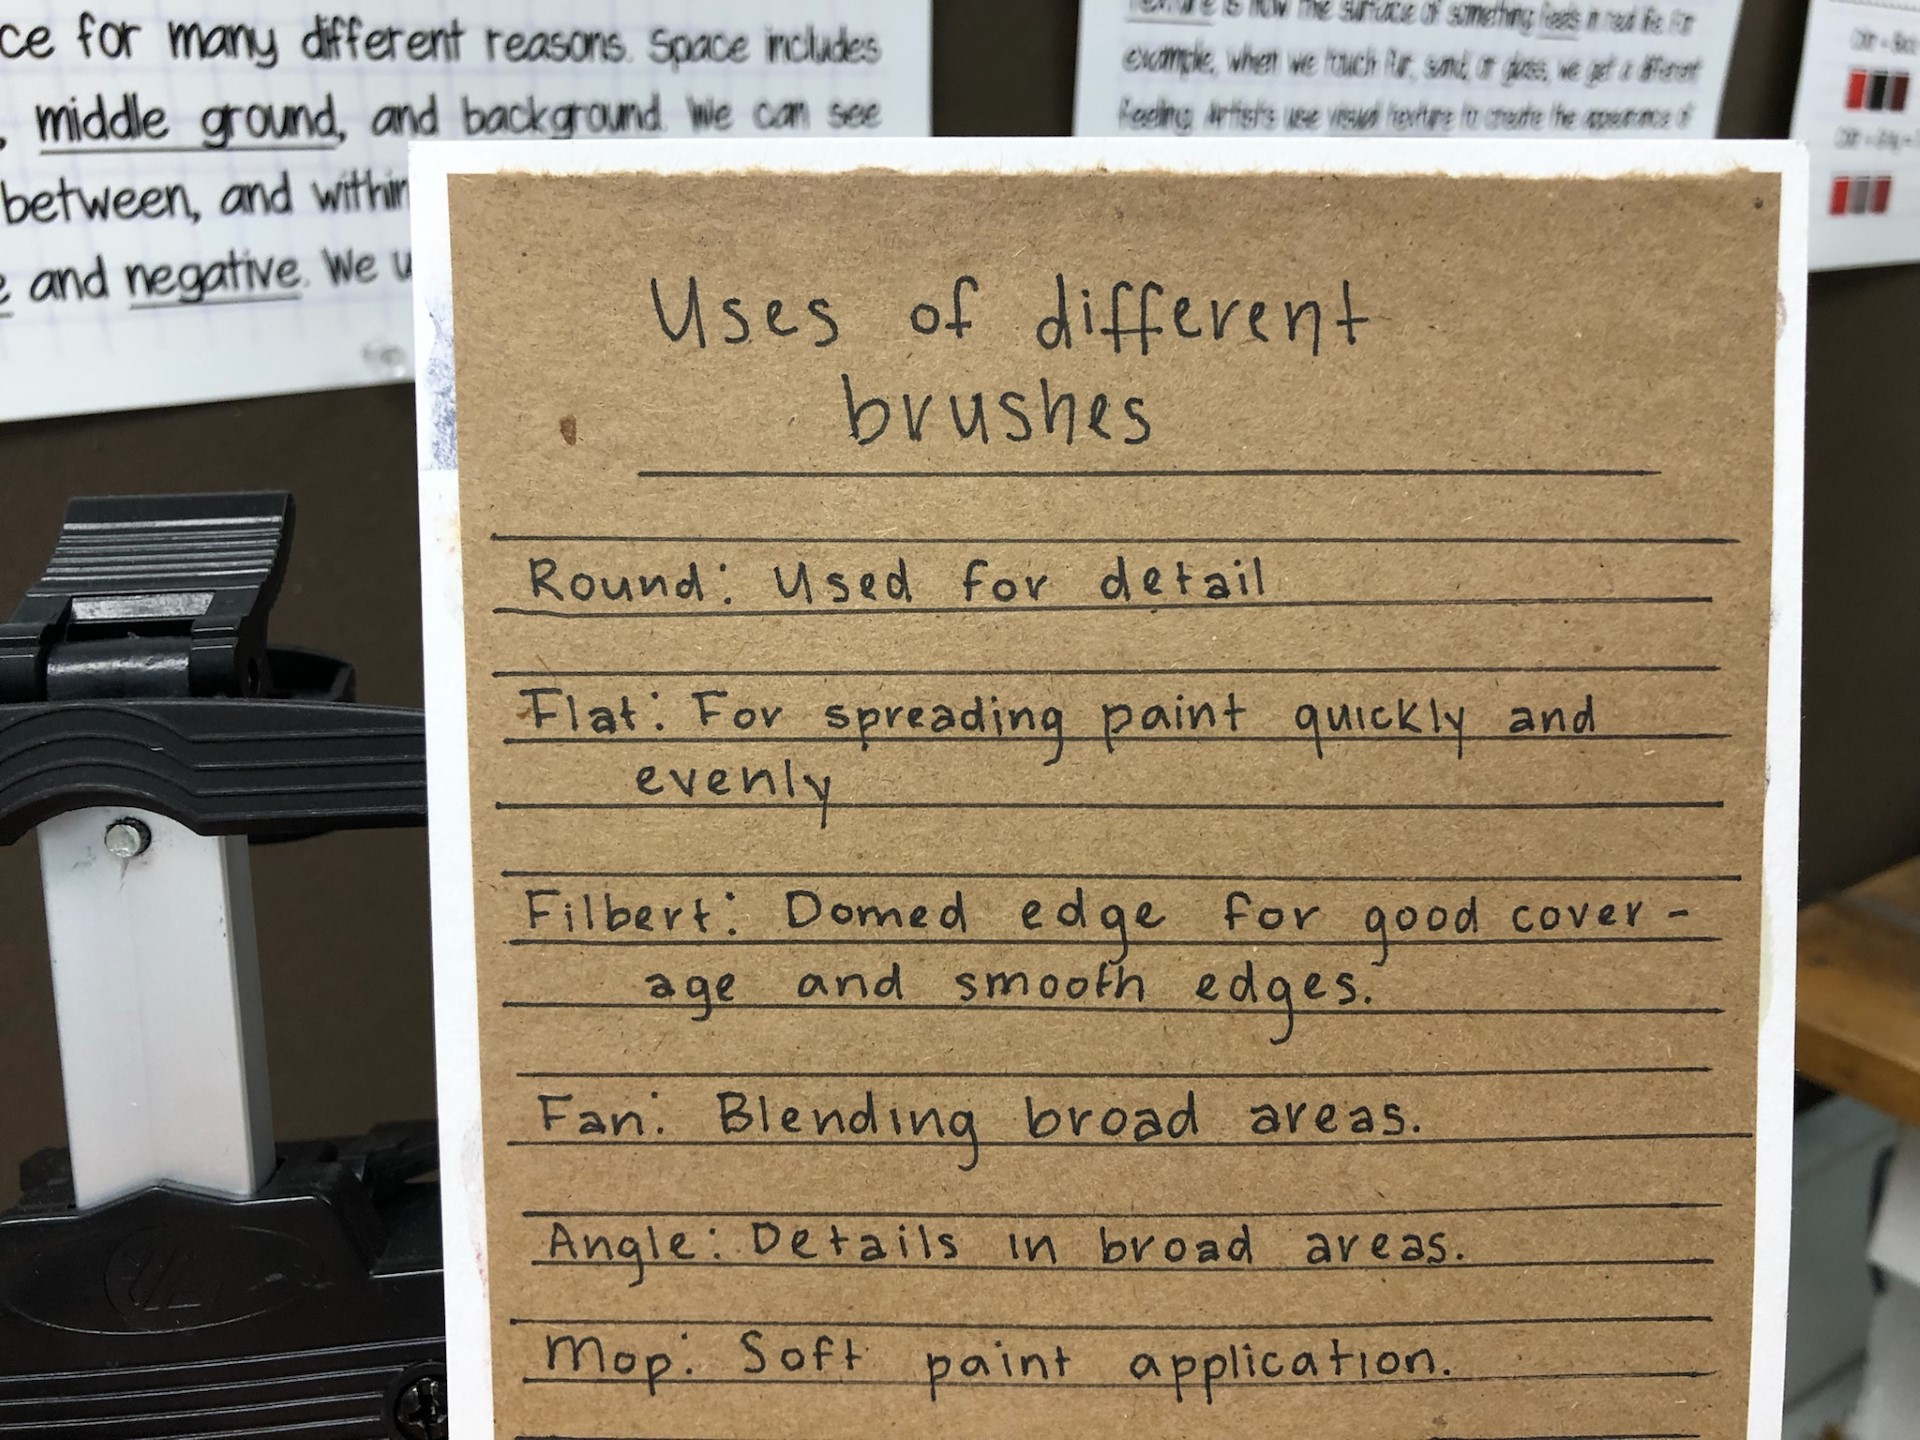 ce for many different reasons. Space includes
, middle ground, and background. We can see
between, and within
and negative. We u
Texture is how the surface of something feels in real life. For
example, when we touch fur, sand, or glass, we get a different
feeling. Artists use visual texture to create the appearance of
Uses of different
brushes
Round: Used for detail
Flat: For spreading paint quickly and
evenly
Filbert: Domed edge for good cover-
age and smooth edges.
Fan: Blending broad areas.
Angle: Details in broad areas.
Mop: Soft paint application.